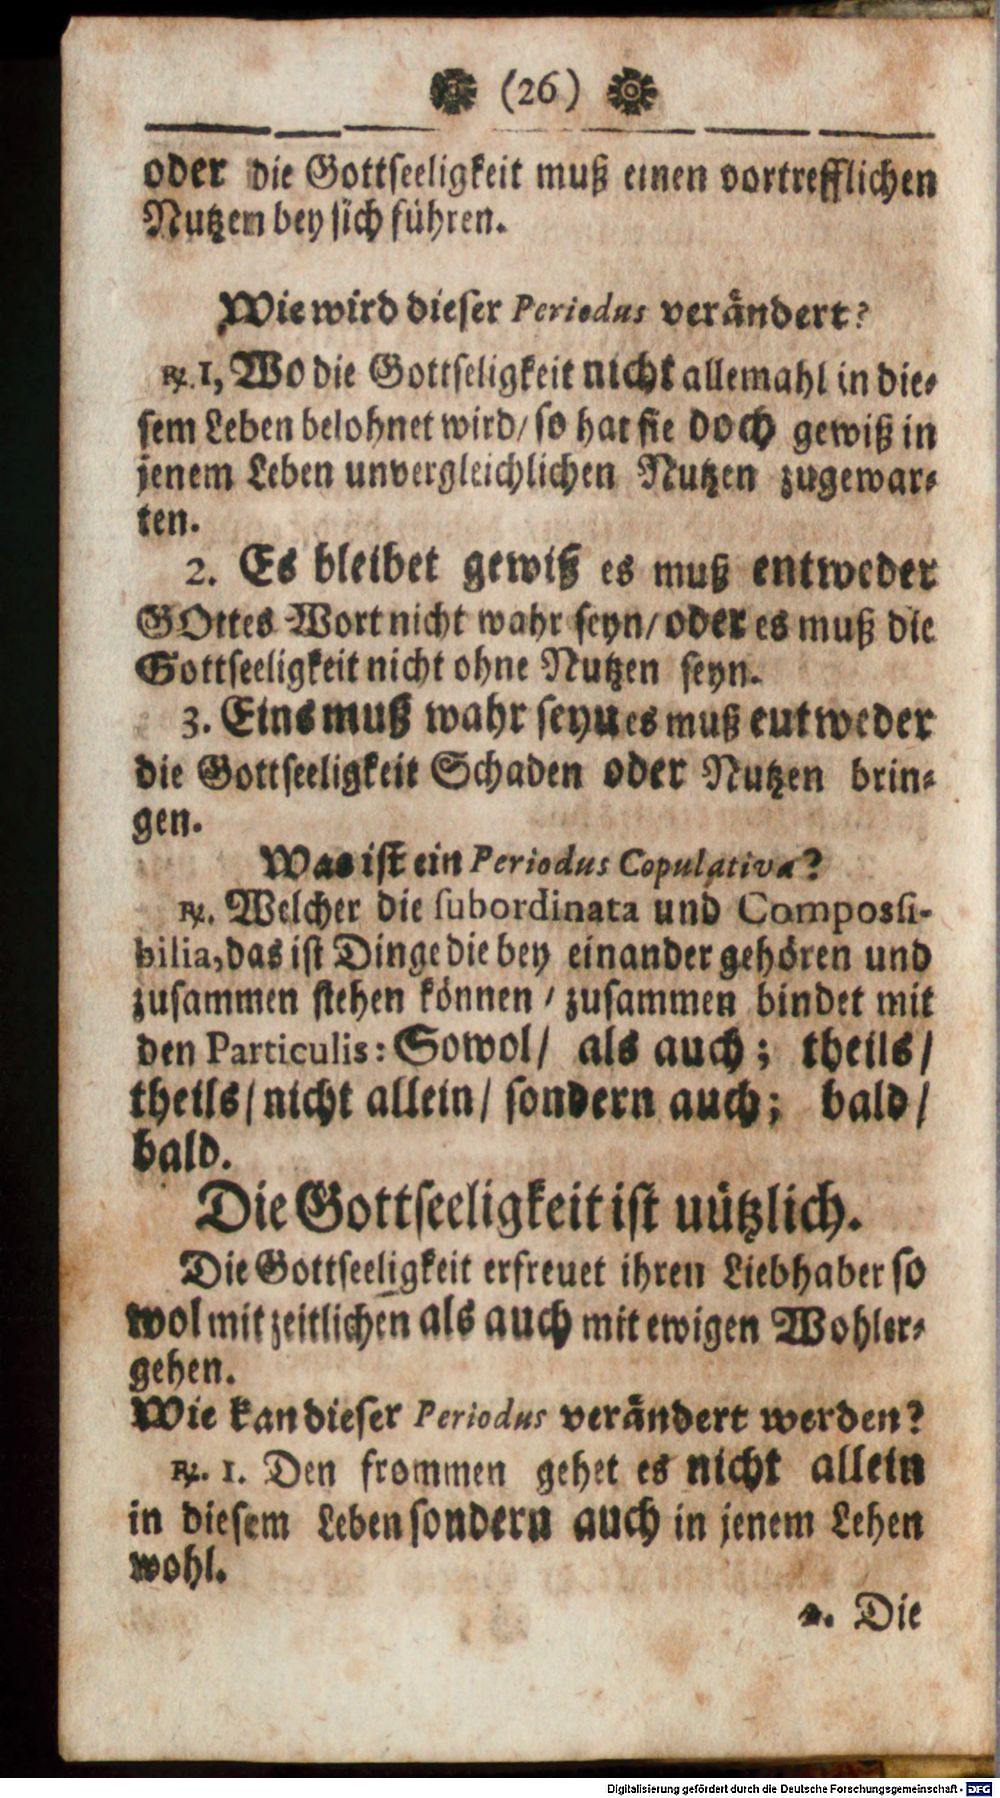 (26)
oder die Gottseeligkeit muß einen vortrefflichen
Nutzen bey sich führen.
Wie wird dieser Periodus verändert?
℞. 1, Wo die Gottseligkeit nicht allemahl in die⸗
sem Leben belohnet wird/ so hat sie doch gewiß in
jenem Leben unvergleichlichen Nutzen zugewar⸗
ten.
2. Es bleibet gewiß es muß entweder
GOttes Wort nicht wahr seyn/ oder es muß die
Gottseeligkeit nicht ohne Nutzen seyn.
3. Eins muß wahr seyu es muß eutweder
die Gottseeligkeit Schaden oder Nutzen brin⸗
gen.
Was ist ein Periodus Copulativa?
℞. Welcher die subordinata und Compossi-
bilia, das ist Dinge die bey einander gehören und
zusammen stehen können / zusammen bindet mit
den Particulis: Sowol/ als auch; theils/
theils/ nicht allein/ sondern auch; bald/
bald.
Die Gottseeligkeit ist uützlich.
Die Gottseeligkeit erfreuet ihren Liebhaber so
wol mit zeitlichen als auch mit ewigen Wohler⸗
gehen.
Wie kan dieser Periodus verändert werden?
℞. 1. Den frommen gehet es nicht allein
in diesem Leben sondern auch in jenem Lehen
wohl.
2. Die
Digitalisierung gefördert durch die Deutsche Forschungsgemeinschaft - DFG